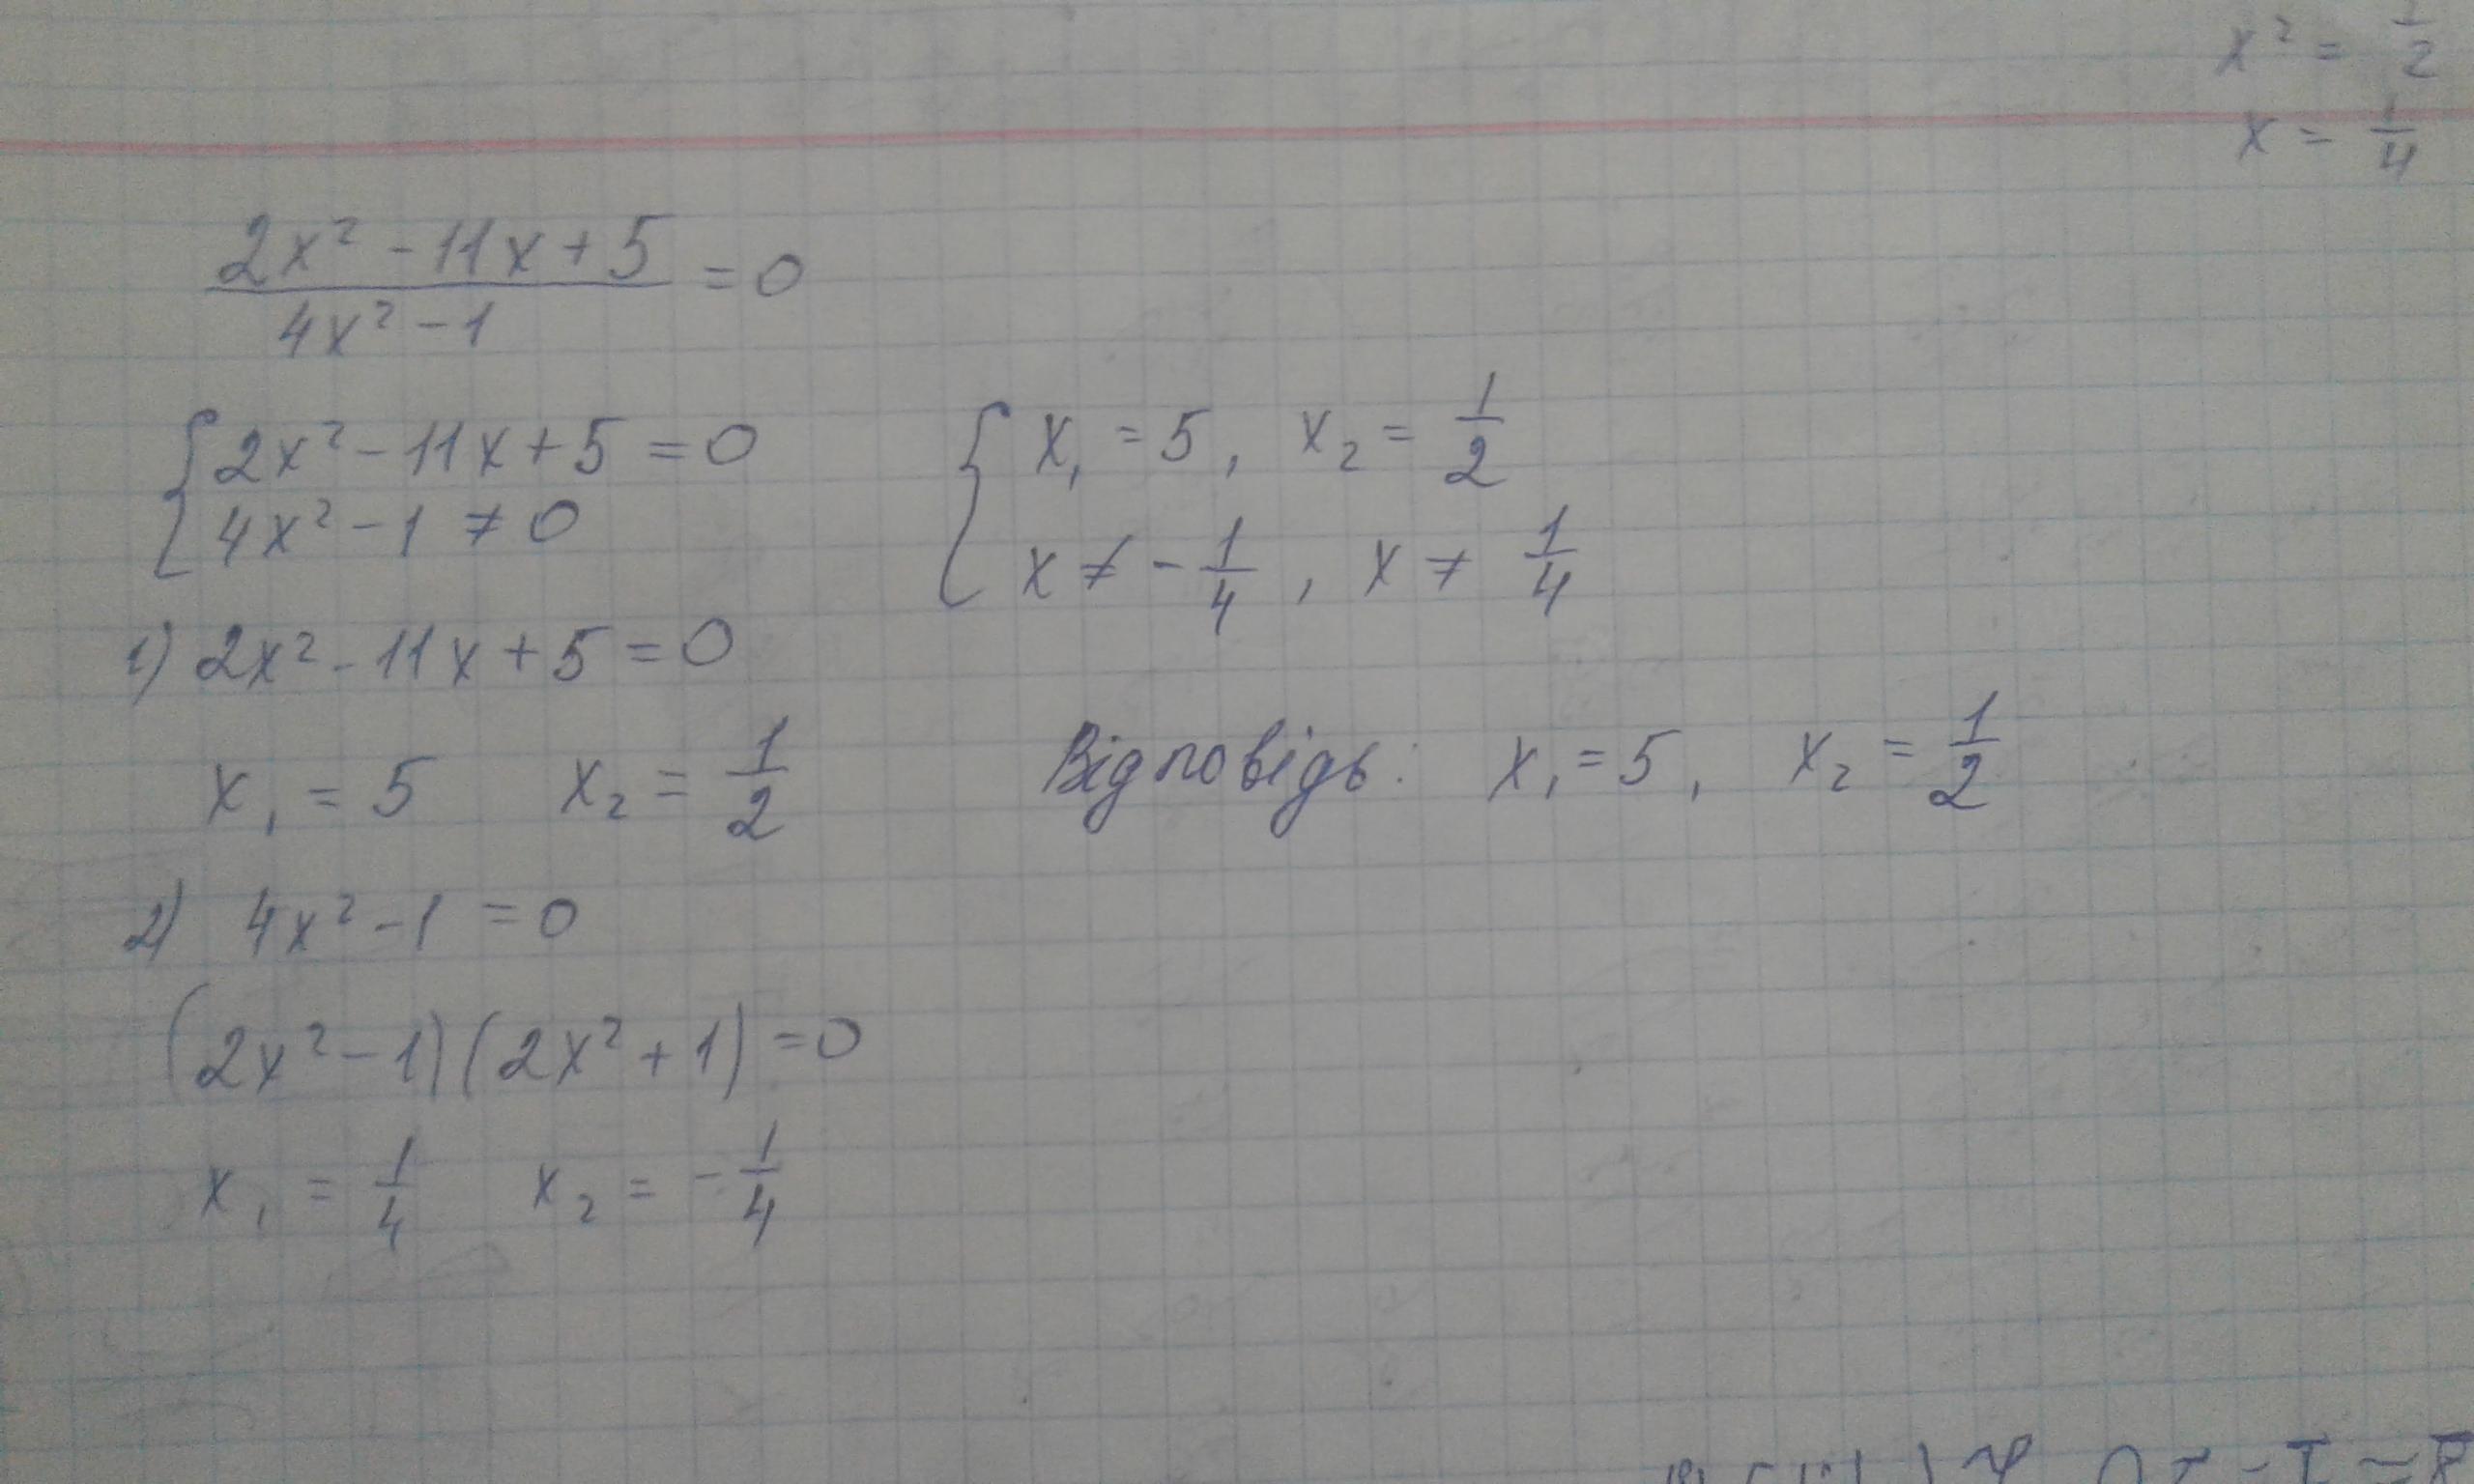 x² = 1/2
x = 1/4
(2x² - 11x + 5)/(4x² - 1) = 0
{ 2x² - 11x + 5 = 0
4x² - 1 ≠ 0
1) 2x² - 11x + 5 = 0
x₁ = 5 x₂ = 1/2
2) 4x² - 1 = 0
(2x² - 1)(2x² + 1) = 0
x₁ = 1/4 x₂ = - 1/4
{ x₁ = 5, x₂ = 1/2
x ≠ - 1/4, x ≠ 1/4
Відповідь: x₁ = 5, x₂ = 1/2